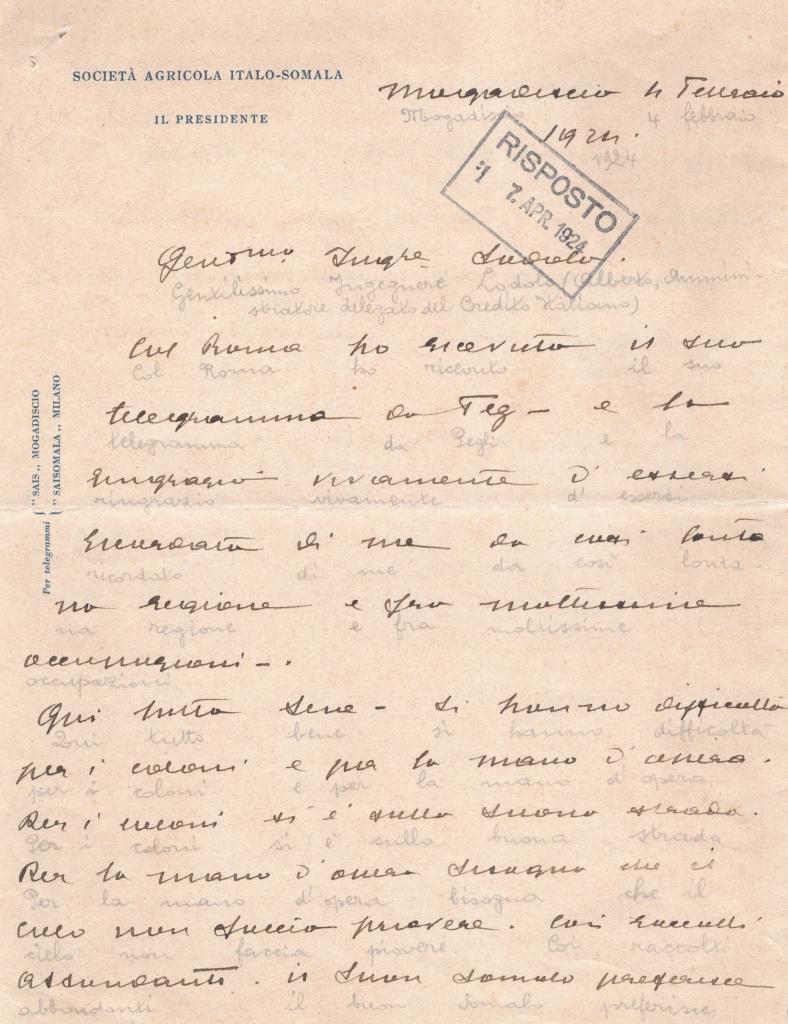 SOCIETÀ AGRICOLA ITALO-SOMALA
IL PRESIDENTE
Mogadiscio 4 Febbraio
Mogadiscio 4 febbraio
1924.
1924
RISPOSTO
7. APR. 1924
Gentmo Ingre Lodolo.
Gentilissimo Ingegnere Lodolo (Alberto, Ammini-
stratore delegato del Credito Italiano)
Col Roma ho ricevuto il suo
Col Roma ho ricevuto il suo
telegramma da Peg- e la
telegramma da Pegli e la
ringrazio vivamente d'essersi
ringrazio vivamente d'essersi
ricordato di me da così lonta
ricordato di me da così lonta-
na regione e fra moltissime
na regione e fra moltissime
occupazioni -.
occupazioni
Qui tutto bene - si hanno difficoltà
Qui tutto bene si hanno difficoltà
per i coloni e per la mano d'opera.
per i coloni e per la mano d'opera
Per i coloni si è sulla buona strada.
Per i coloni si è sulla buona strada
Per la mano d'opera bisogna che il
Per la mano d'opera bisogna che il
cielo non faccia piovere. Coi raccolti
cielo non faccia piovere. Coi raccolti
abbondanti il buon Somalo preferisce
abbondanti il buon Somalo preferisce
Per telegrammi { "SAIS„ MOGADISCIO
"SAISOMALA„ MILANO